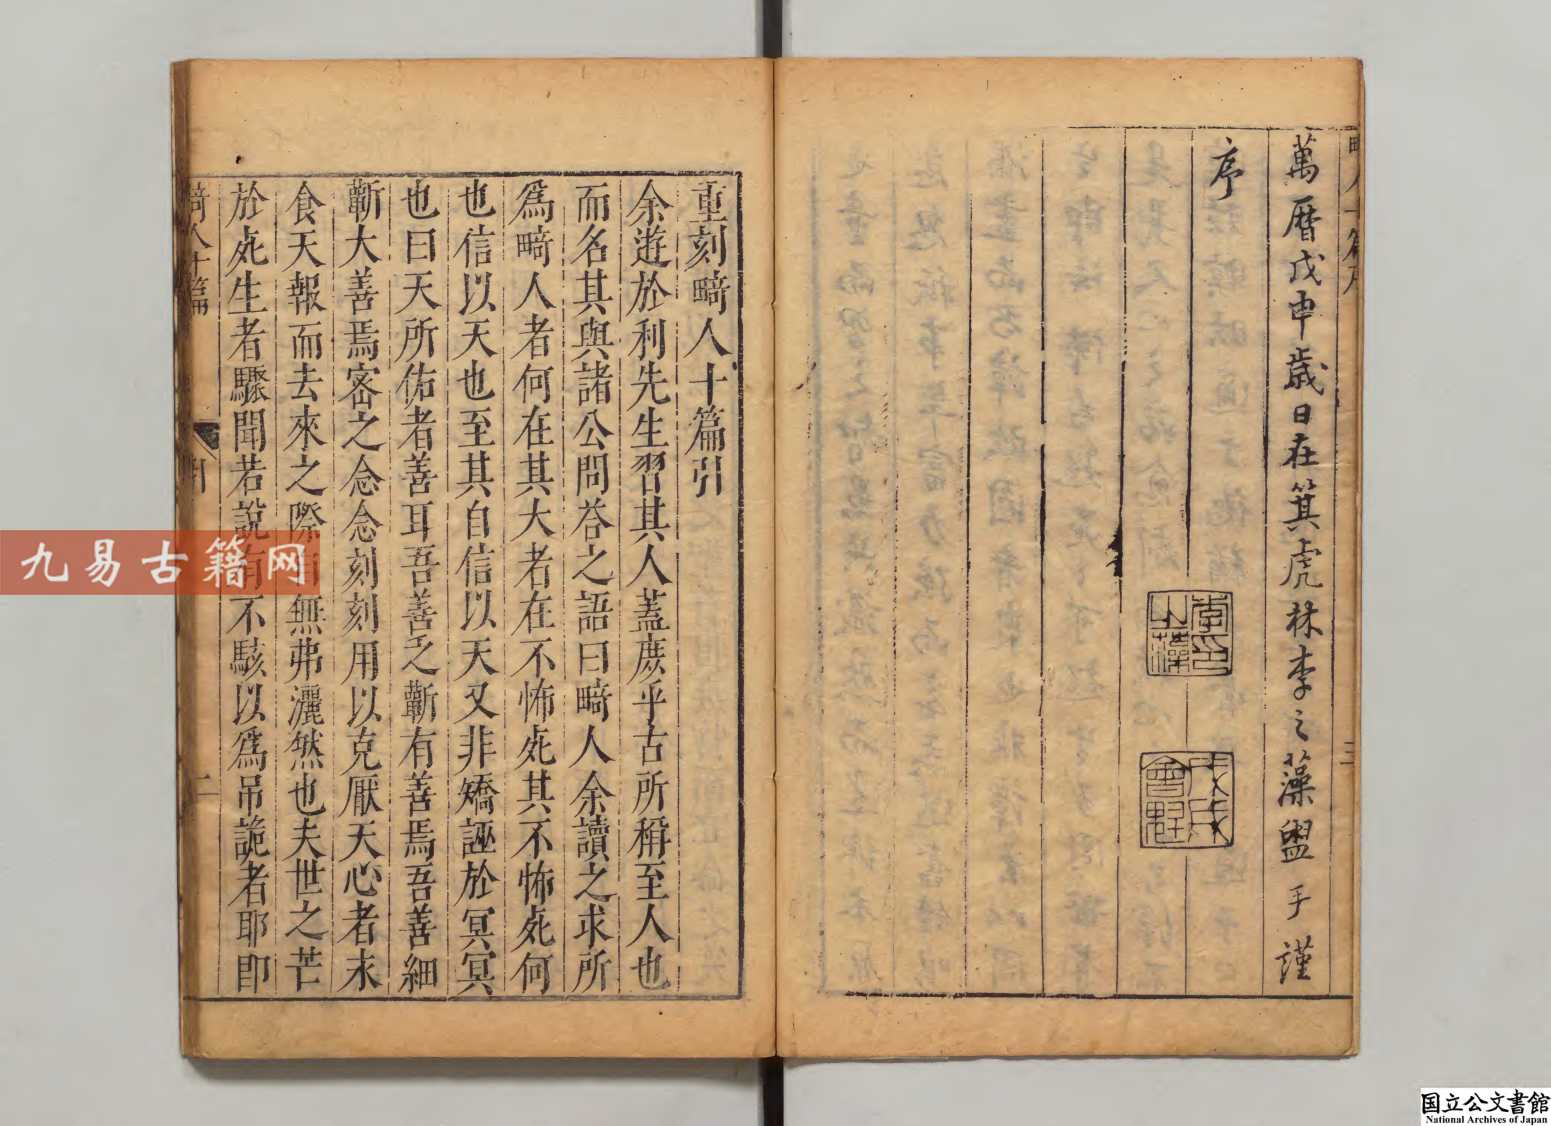 萬曆戊申歲日在箕虎林李之藻盥手謹
序
李之藻印
重刻畸人十篇引
余遊於利先生習其人蓋庶乎古所稱至人也
而名其與諸公問答之語曰畸人余讀之求所
為畸人者何在其大者在不怖死其不怖死何
也信以天也至其自信以天又非矯誣於冥冥
也曰天所佑者善耳吾善之蘄有善焉吾善細
蘄大善焉密之念念刻刻用以克厭天心者未
食天報而去來之際無弗灑然也夫世之芒
於死生者驟聞若說有不駭以為吊詭者耶卽
畸人十篇
引
二
九易古籍网
国立公文書館
National Archives of Japan